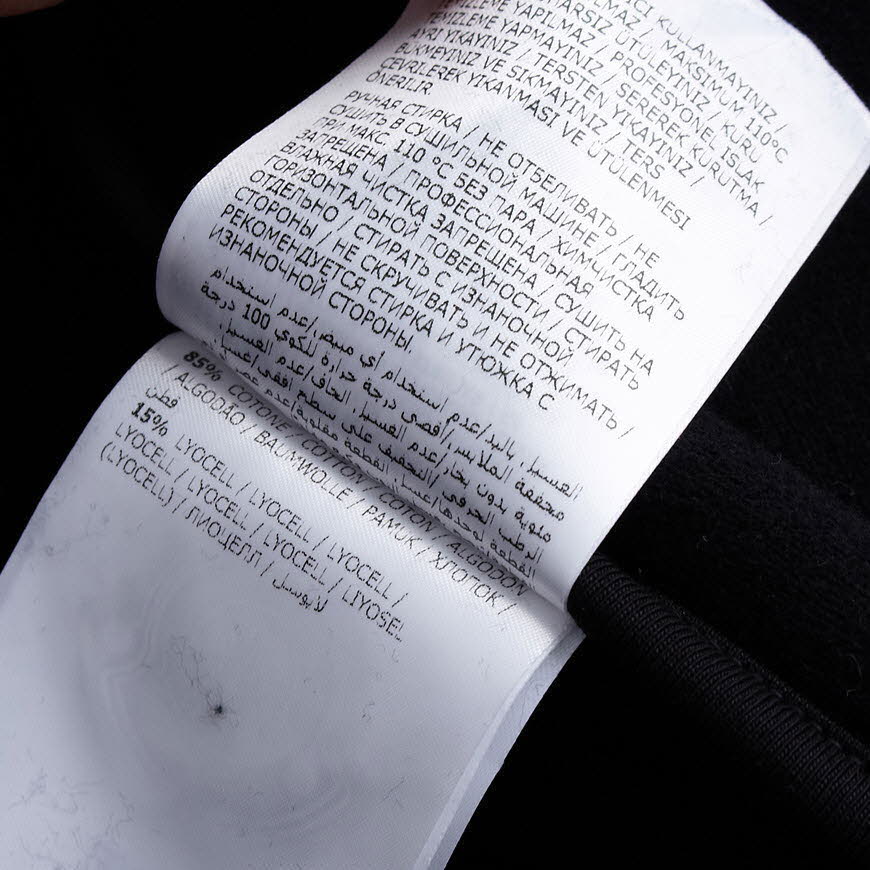 CI KULLANMAYINIZ /
TARSIZ ÜTÜLEYİNİZ / MAKSIMUM 110°C
TEMİZLEME YAPILMAZ / PROFESYONEL ISLAK
TEMİZLEME YAPMAYINIZ / SEREREK KURUTMA /
AYRI YIKAYINIZ / TERSTEN YIKAYINIZ /
BÜKMEYİNİZ VE SIKMAYINIZ / TERS
ÇEVRİLEREK YIKANMASI VE ÜTÜLENMESİ
ÖNERİLİR
РУЧНАЯ СТИРКА / НЕ ОТБЕЛИВАТЬ / НЕ
СУШИТЬ В СУШИЛЬНОЙ МАШИНЕ / ГЛАДИТЬ
ПРИ МАКС. 110 °C БЕЗ ПАРА / ХИМЧИСТКА
ЗАПРЕЩЕНА / ПРОФЕССИОНАЛЬНАЯ
ВЛАЖНАЯ ЧИСТКА ЗАПРЕЩЕНА / СУШИТЬ НА
ГОРИЗОНТАЛЬНОЙ ПОВЕРХНОСТИ / СТИРАТЬ
ОТДЕЛЬНО / СТИРАТЬ С ИЗНАНОЧНОЙ
СТОРОНЫ / НЕ СКРУЧИВАТЬ И НЕ ОТЖИМАТЬ /
РЕКОМЕНДУЕТСЯ СТИРКА И УТЮЖКА С
ИЗНАНОЧНОЙ СТОРОНЫ.
الغسيل. باليد/عدم استخدام أي مبيض/عدم استخدام
مجففة الملابس/أقصى درجة حرارة للكوي 100 درجة
مئوية بدون بخار/عدم الغسيل الجاف/عدم الغسيل
الرطب الحرفي/التجفيف على سطح أفقي/غسل
القطعة لوحدها/غسل القطعة مقلوبة/عدم عصر
85% COTONE / COTTON / COTON / ALGODON
/ ALGODÃO / BAUMWOLLE / PAMUK / ХЛОПОК /
قطن
15% LYOCELL / LYOCELL / LYOCELL /
LYOCELL / LYOCELL / LYOCELL / LİYOSEL
(LYOCELL) / ЛИОЦЕЛЛ / لايوسل